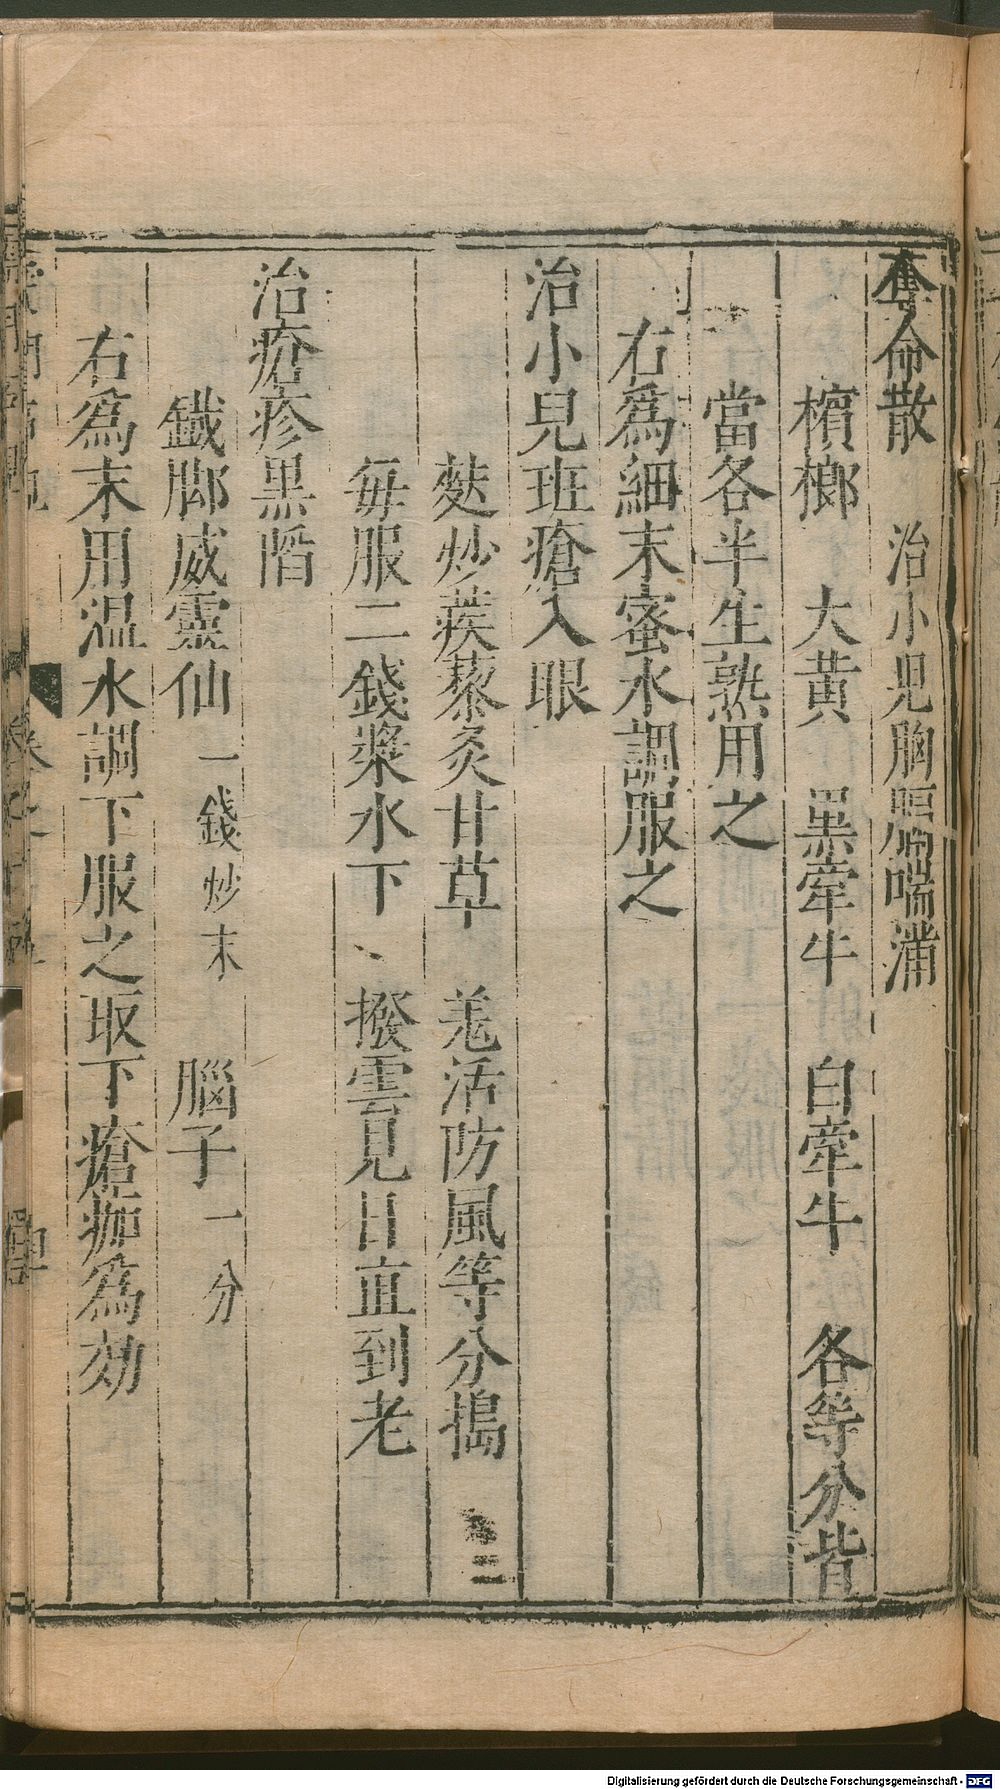 奪命散　治小児胸膈喘滿
檳榔　大黃　黑牽牛　白牽牛　各等分皆
當各半生熟用之
右爲細末蜜水調服之
治小兒班瘡入眼
麩炒蒺藜炙甘草　羗活防風等分搗
每服二錢漿水下　撥雲見日直到老
治瘡疹黑陷
鐵脚威靈仙　一錢炒末　腦子　一分
右為末用温水調下服之取下瘡痂為効
卷之
Digitalisierung gefördert durch die Deutsche Forschungsgemeinschaft - DFG